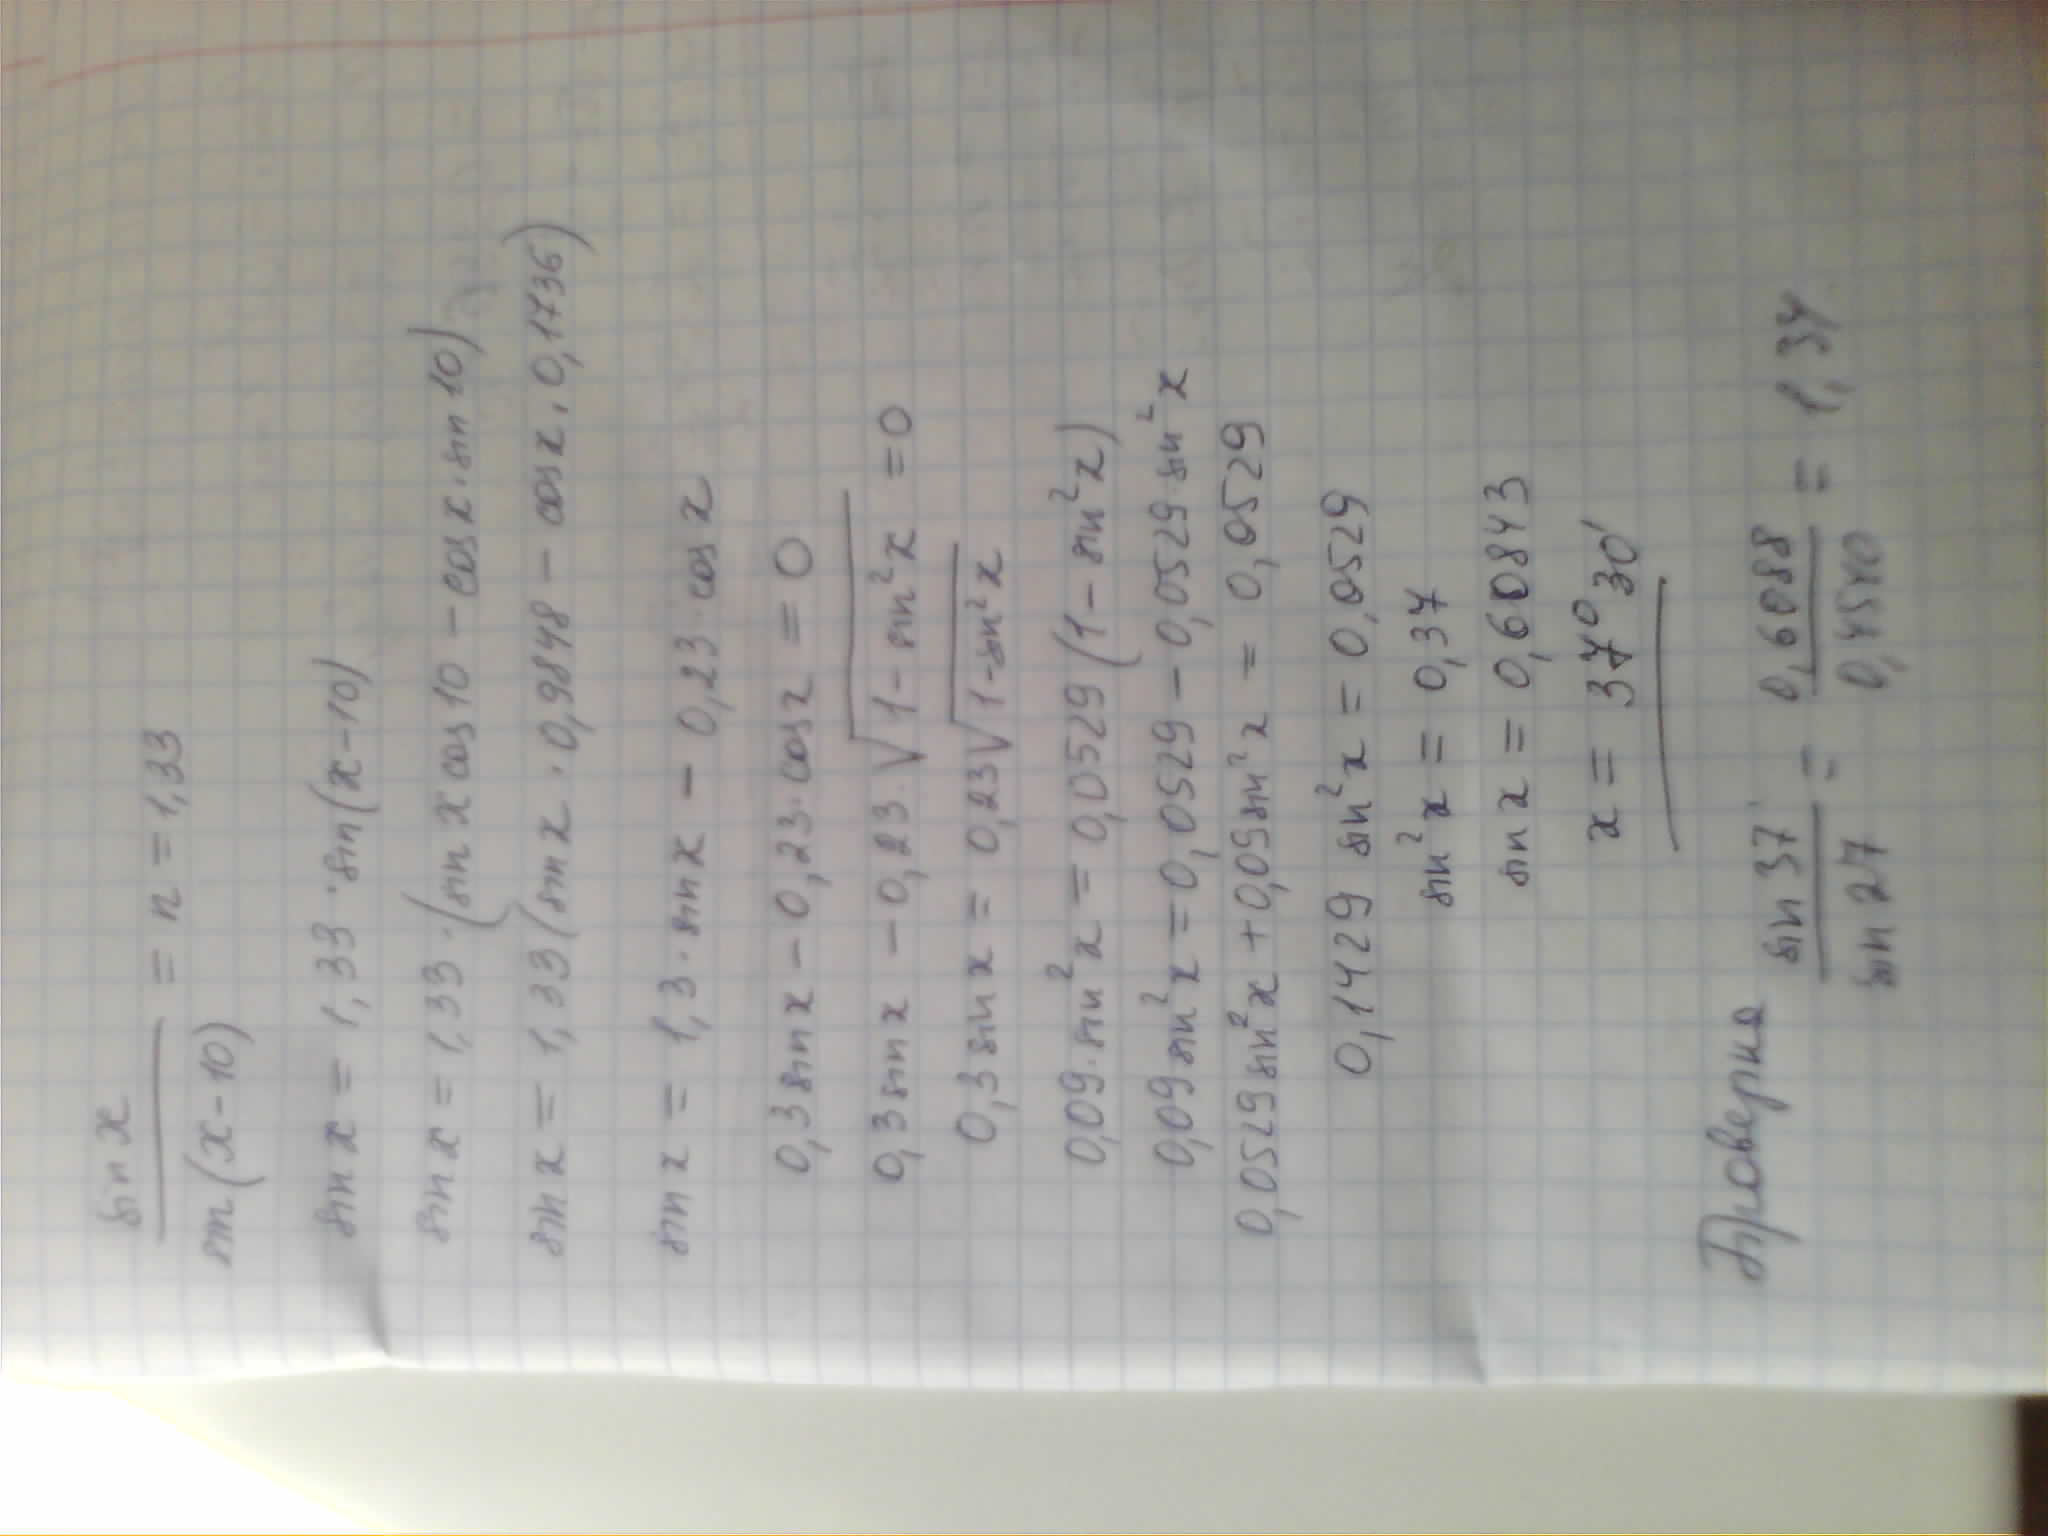 sin x / sin(x-10) = n = 1,33
sin x = 1,33 · sin(x-10)
sin x = 1,33 · (sin x cos 10 - cos x · sin 10)
sin x = 1,33 (sin x · 0,9848 - cos x · 0,1736)
sin x = 1,3 · sin x - 0,23 · cos x
0,3 sin x - 0,23 · cos x = 0
0,3 sin x - 0,23 · √(1 - sin²x) = 0
0,3 sin x = 0,23 √(1 - sin²x)
0,09 · sin²x = 0,0529 (1 - sin²x)
0,09 sin²x = 0,0529 - 0,0529 sin²x
0,0529 sin²x + 0,09 sin²x = 0,0529
0,1429 sin²x = 0,0529
sin²x = 0,37
sin x = 0,60843
x = 37° 30'
Проверка sin 37 / sin 27 = 0,6088 / 0,4540 = 1,34